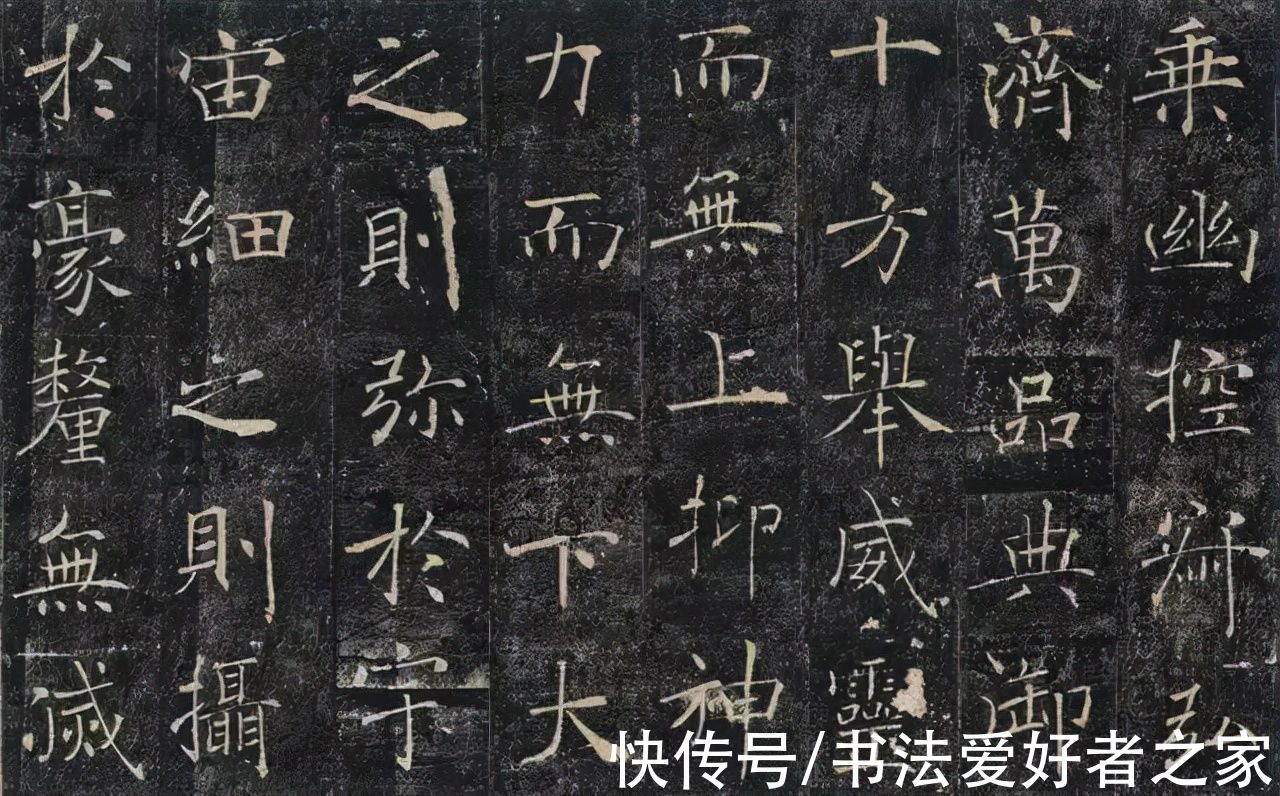 乘幽控寂弘
濟萬品典御
十方舉威靈
而無上抑神
力而無下大
之則弥於宇
宙細之則攝
於豪釐無滅
快传号/书法爱好者之家